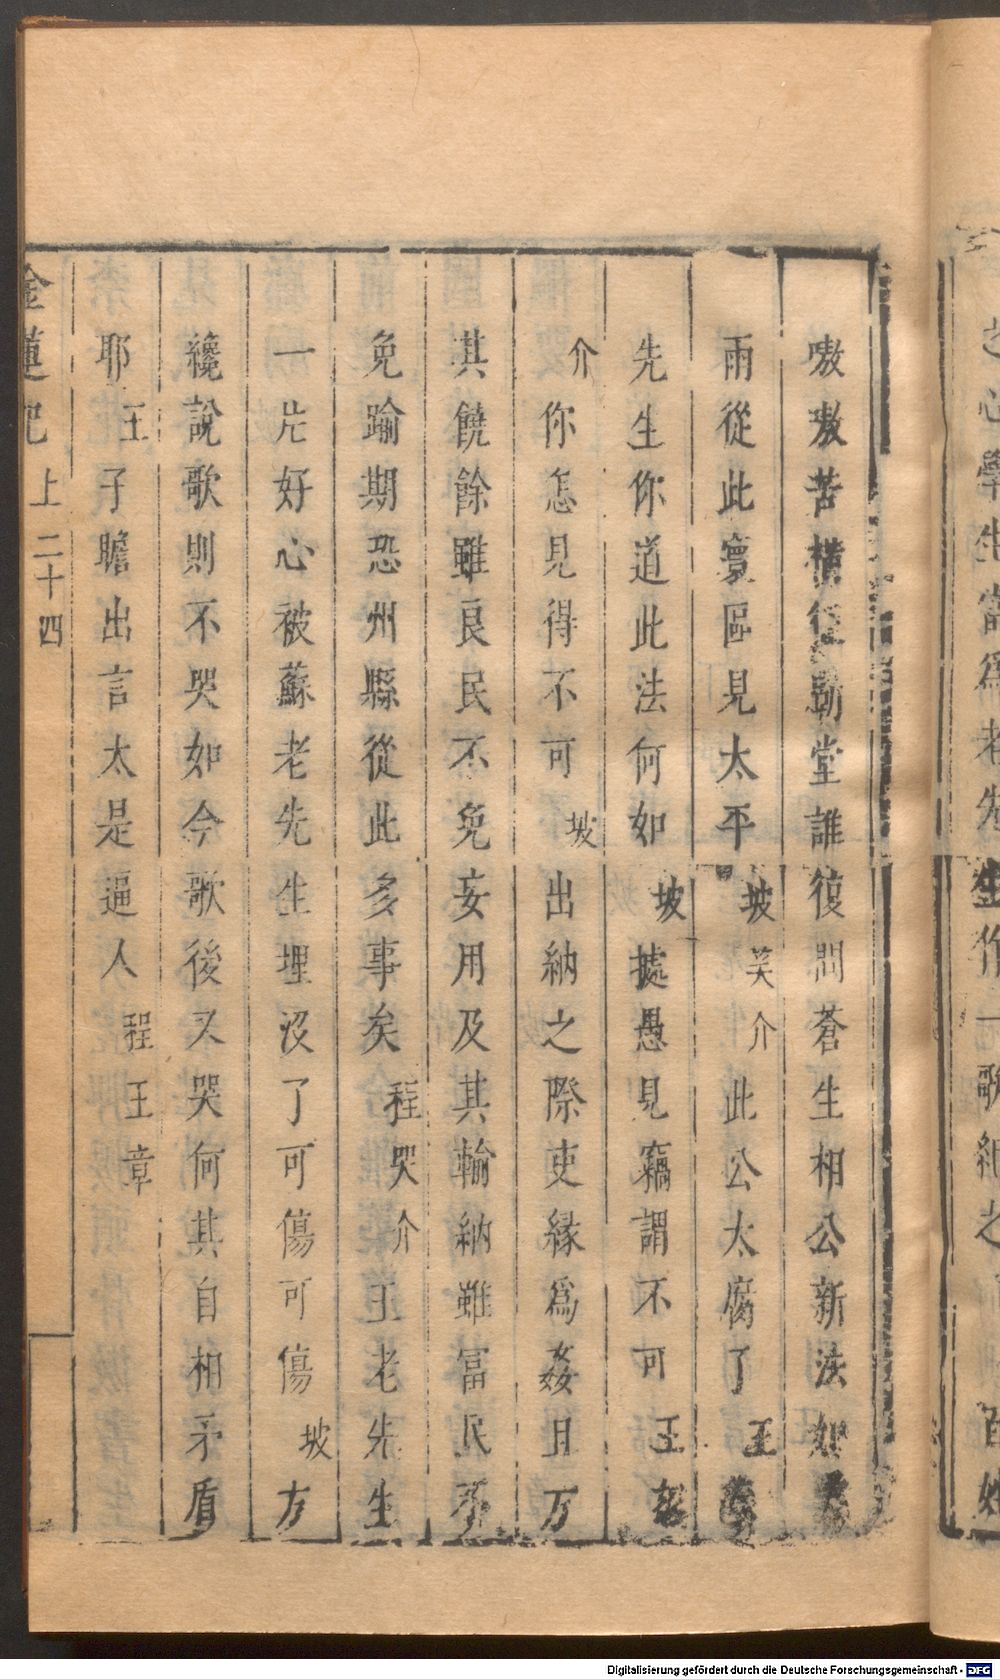 嗷嗷苦橫征勤堂誰復問蒼生相公新法如
雨從此寰區見太平坡笑介此公太腐了王
先生你道此法何如坡據愚見竊謂不可王怒
介你怎見得不可坡出納之際吏緣爲姦且万
其饒餘雖良民不免妄用及其輸納雖富民不
免踰期恐州縣從此多事矣程哭介王老先生
一片好心被蘇老先生埋沒了可傷可傷坡方
纔說歌則不哭如今歌後又哭何其自相矛盾
耶王子瞻出言太是逼人程王章
金蓮記 上 二十四
之心學生當爲老先生作一歌紀之 百姓
Digitalisierung gefördert durch die Deutsche Forschungsgemeinschaft - DFG